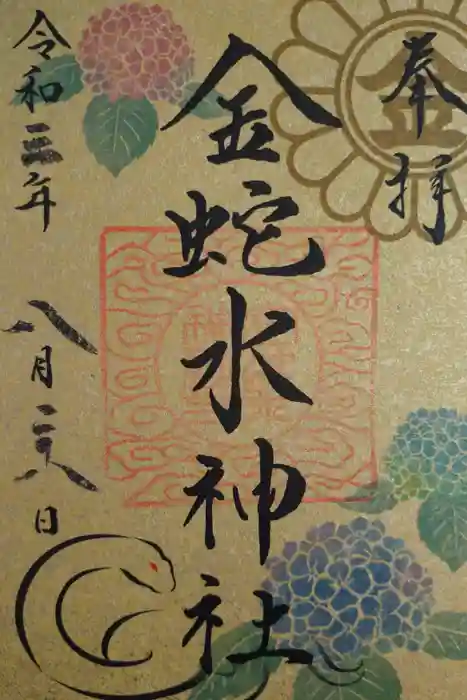 奉拝
金
金蛇水神社
令和三年 八月二八日